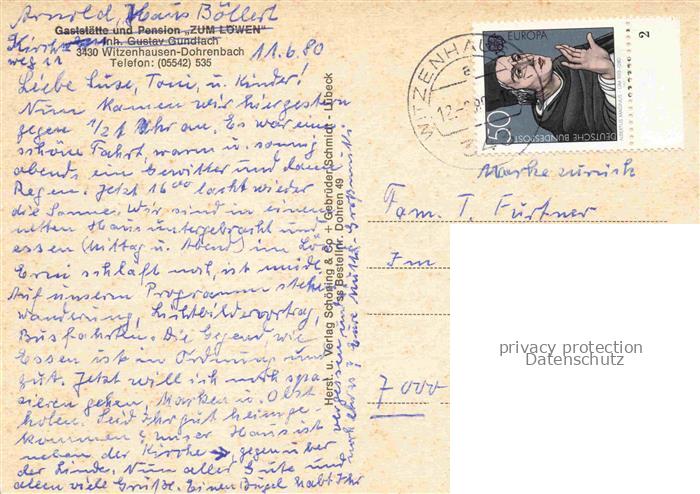 Arnold, Haus Böllert
Gaststätte und Pension „ZUM LÖWEN“
Inh. Gustav Gundlach
Kirchweg 11
3430 Witzenhausen-Dohrenbach
Telefon: (05542) 535
11.6.80
Liebe Luse, Toni, u. Kinder!
Nun kamen wir hier gestern
gegen 1/2 1 Uhr an. Es war eine
schöne Fahrt, warm u. sonnig
abends ein Gewitter und dann
Regen. Jetzt 16 00 lacht wieder
die Sonne. Wir sind in einem
netten Haus untergebracht und
essen (Mittag u. Abend) im Lö
Erni schläft noch, ist müde.
Auf unserm Programm stehen
wanderung, Lichtbildervortrag,
Busfahrten. Die Gegend wie
Essen ist in Ordnung und
gut. Jetzt will ich noch spa-
zieren gehen, Marken u. Obst
holen. Seid Ihr gut heimge-
kommen? Unser Haus ist
neben der Kirche gegenüber
der Linde. Nun alles Gute und
allen viele Grüße. Einen Bügel habt Ihr
vergessen
noch etwas? Eure Mutti-Großmutti
Herst. u. Verlag Schöning & Co + Gebrüder Schmidt - Lübeck
Bestellnr. Dohren 49
WITZENHAUSEN
12.-6.80
EUROPA
ALBERTUS MAGNUS
DEUTSCHE BUNDESPOST
50
2
Marke zurück
Fam. T. Furtner
Im
7000
privacy protection
Datenschutz